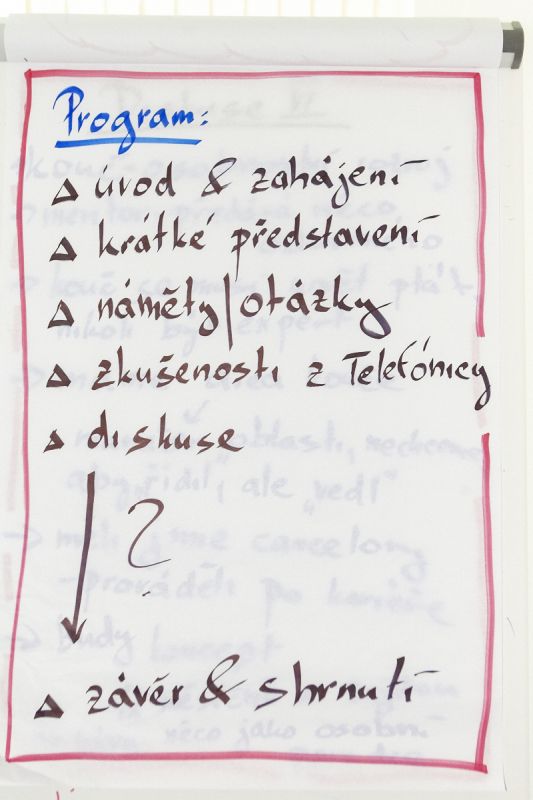 Program:
△ úvod & zahájení
△ krátke představení
△ náměty | otázky
△ zkušenosti z Telefónicy
△ diskuse
?
△ závěr & shrnutí